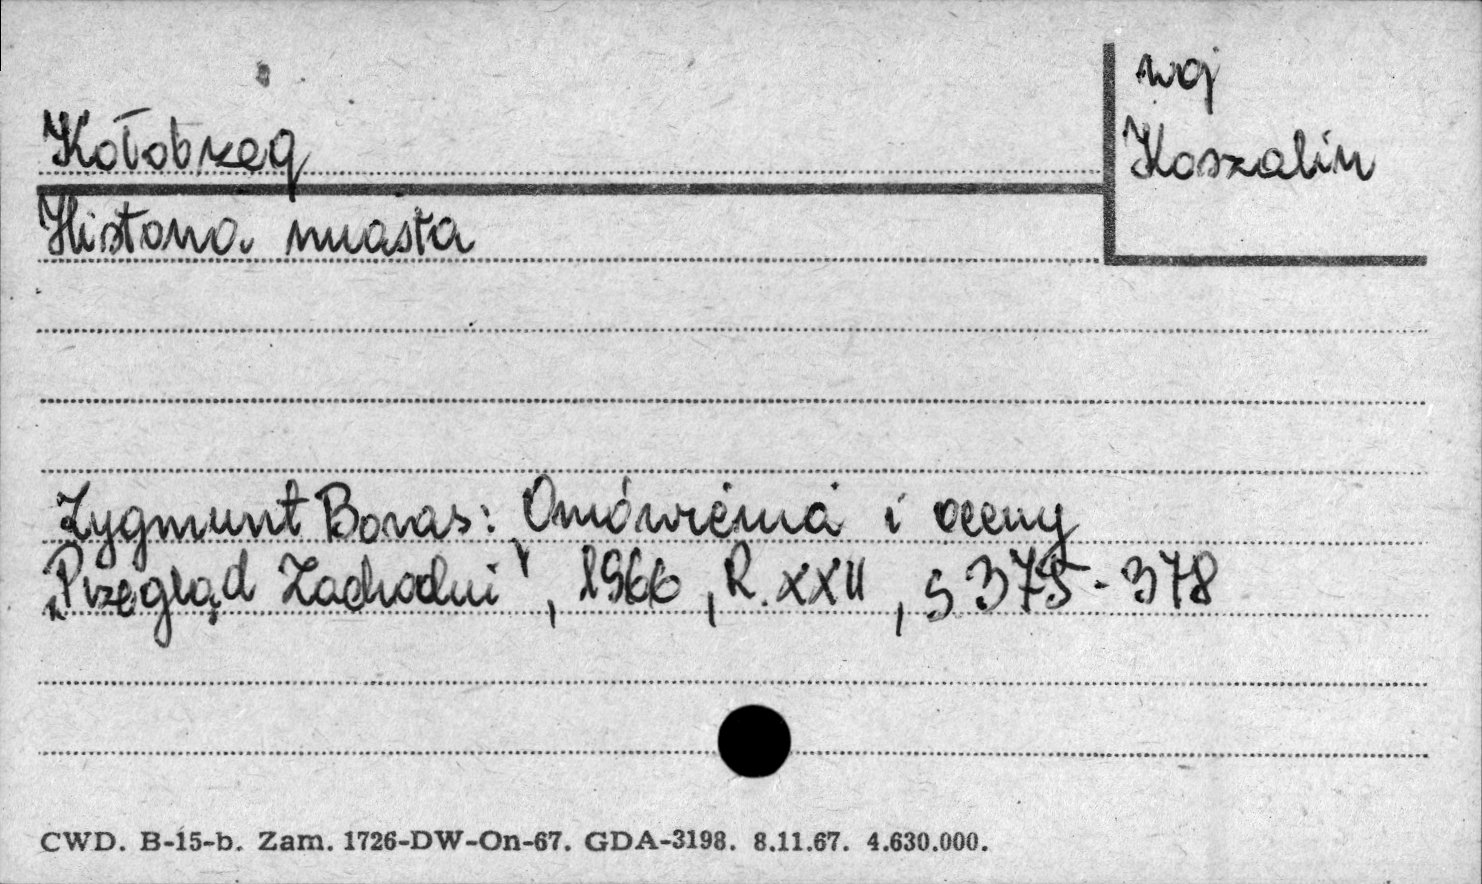 woj
Koszalin
Kołobrzeg
Historia miasta
Zygmunt Boras: Omówienia i oceny
„Przegląd Zachodni”, 1966, R. XXII, s 375-378
CWD. B-15-b. Zam. 1726-DW-On-67. GDA-3198. 8.11.67. 4.630.000.